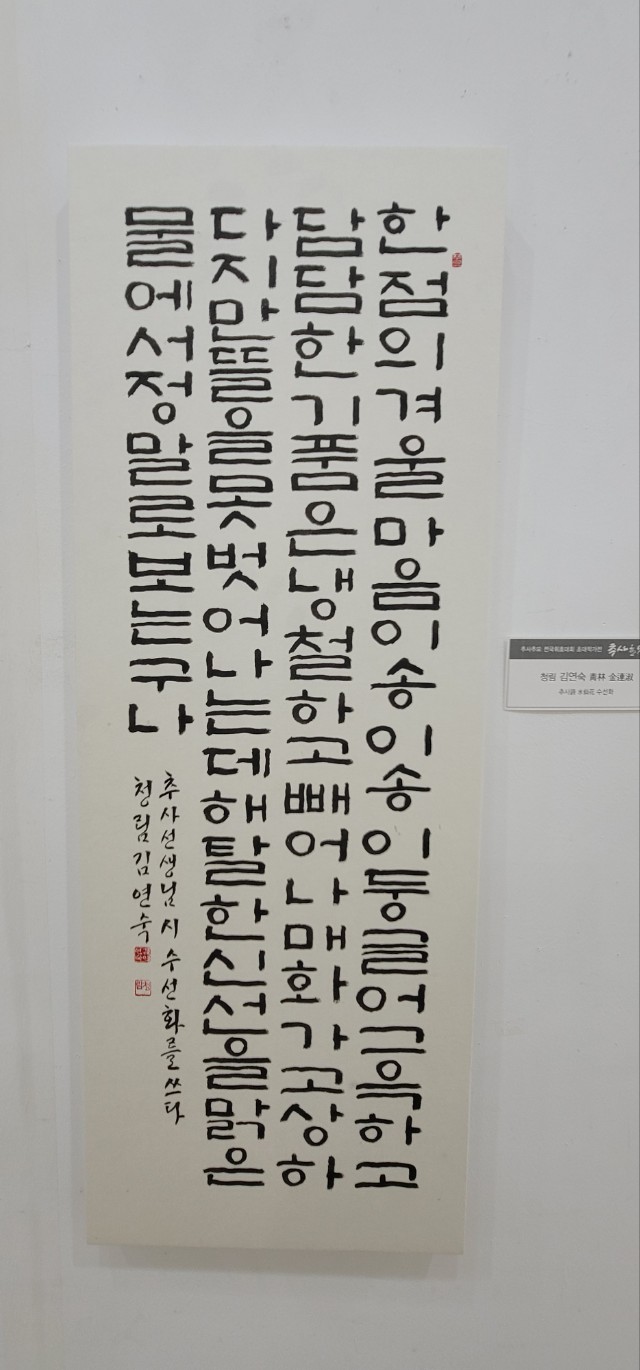 한점의겨울마음이송이송이둥글어그윽하고
담담한기품은냉철하고빼어나매화가고상하
다지만뜰을못벗어나는데해탈한신선을맑은
물에서정말로보는구나
추사선생님 시 수선화를 쓰다
청림 김연숙
추사추모 전국휘호대회 초대작가전
청림 김연숙 靑林 金連淑
추사詩 水仙花 수선화